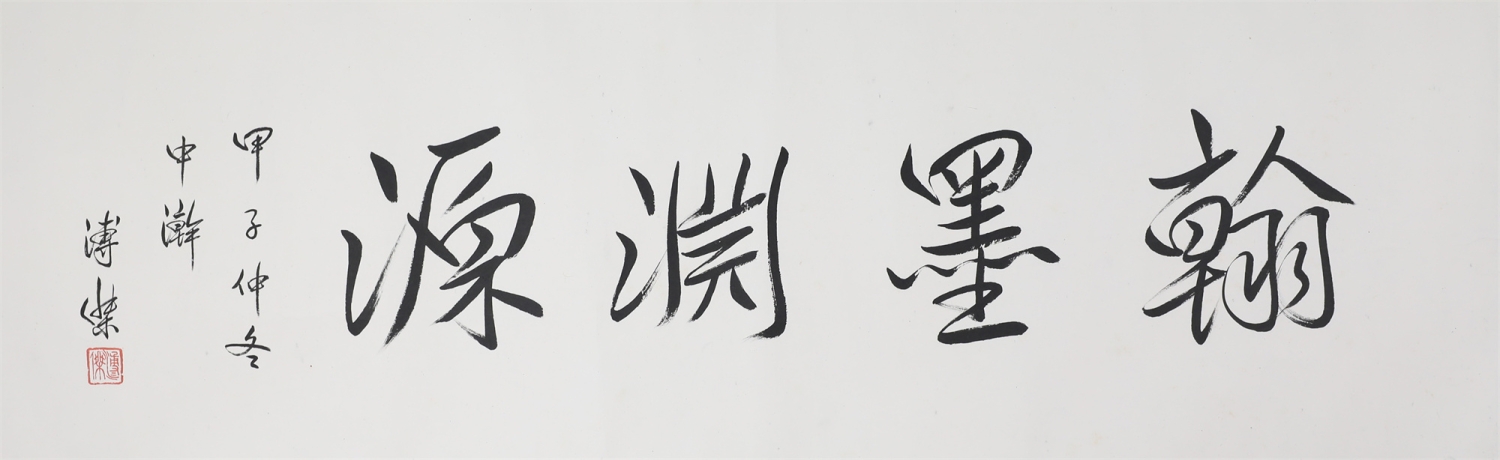 翰墨淵源
甲子仲冬
中澣
溥傑
溥傑